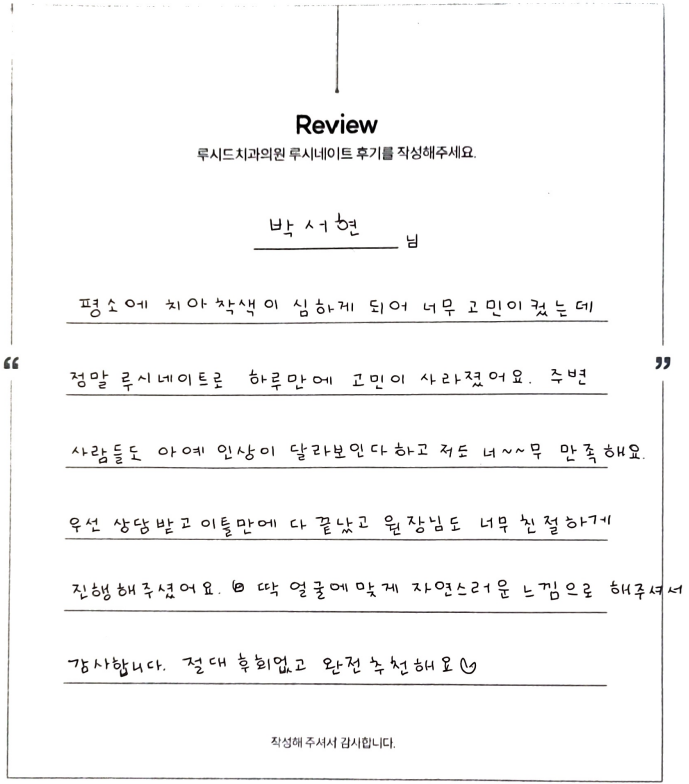 Review
루시드치과의원 루시네이트 후기를 작성해주세요.
박서현 님
“ ”
평소에 치아 착색이 심하게 되어 너무 고민이 컸는데
정말 루시네이트로 하루만에 고민이 사라졌어요. 주변
사람들도 아예 인상이 달라보인다하고 저도 너~~무 만족해요.
우선 상담받고 이틀만에 다 끝났고 원장님도 너무 친절하게
진행해주셨어요. 딱 얼굴에맞게 자연스러운 느낌으로 해주셔서
감사합니다. 절대 후회없고 완전추천해요♡
작성해 주셔서 감사합니다.